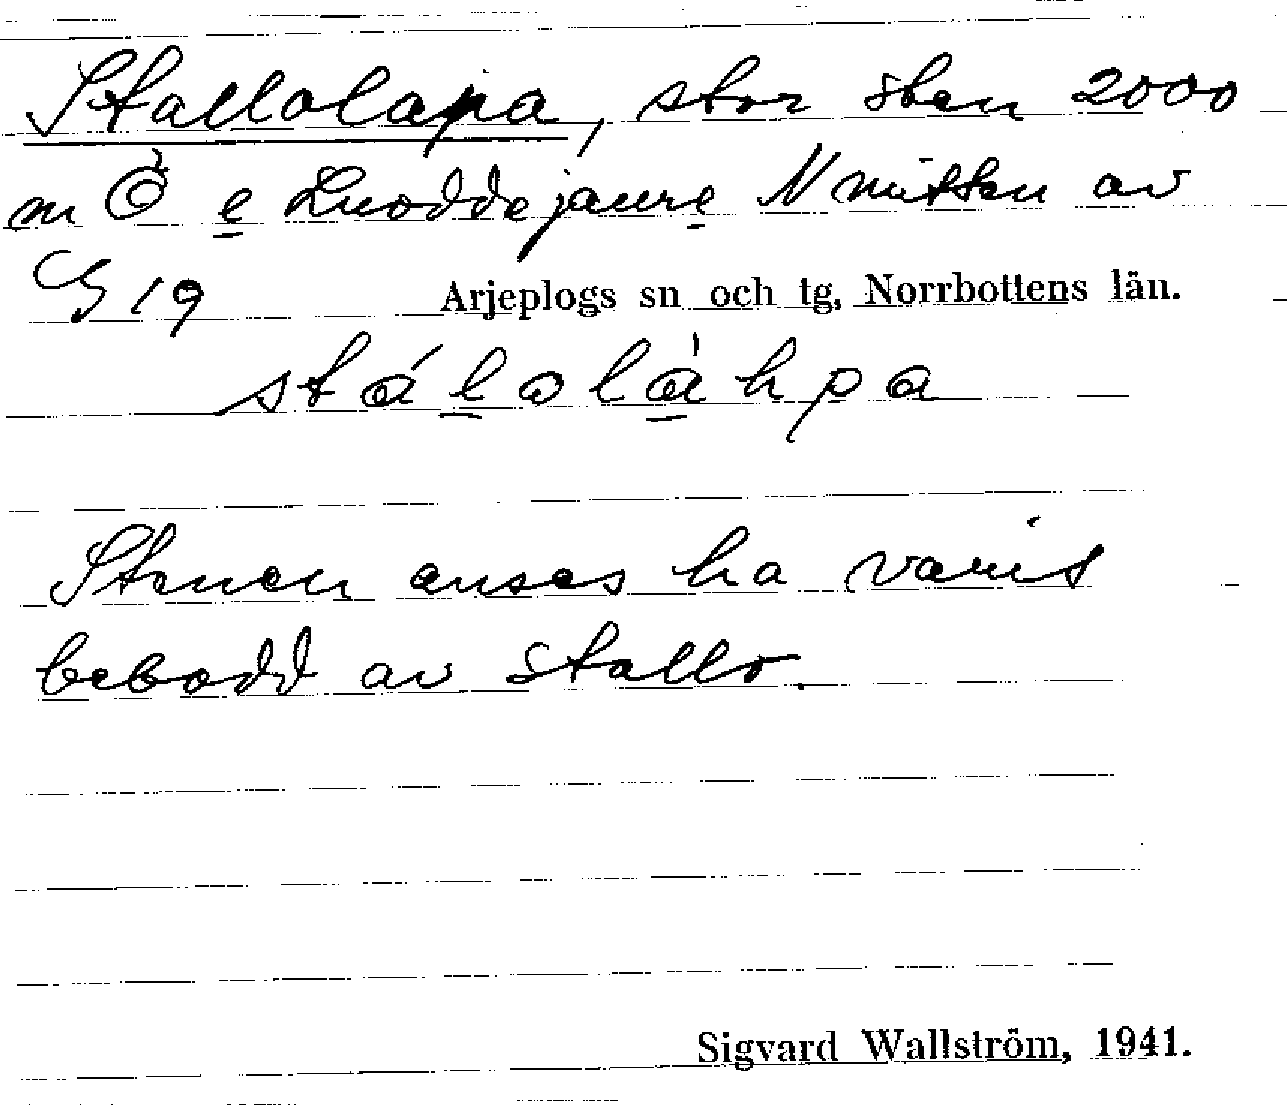 Stallolapa, stor sten 2000
m Ö e Luoddejaure N mitten av
G 19 Arjeplogs sn och tg, Norrbottens län.
stálolàhpa
Stenen anses ha varit
bebodd av stallo.
Sigvard Wallström, 1941.